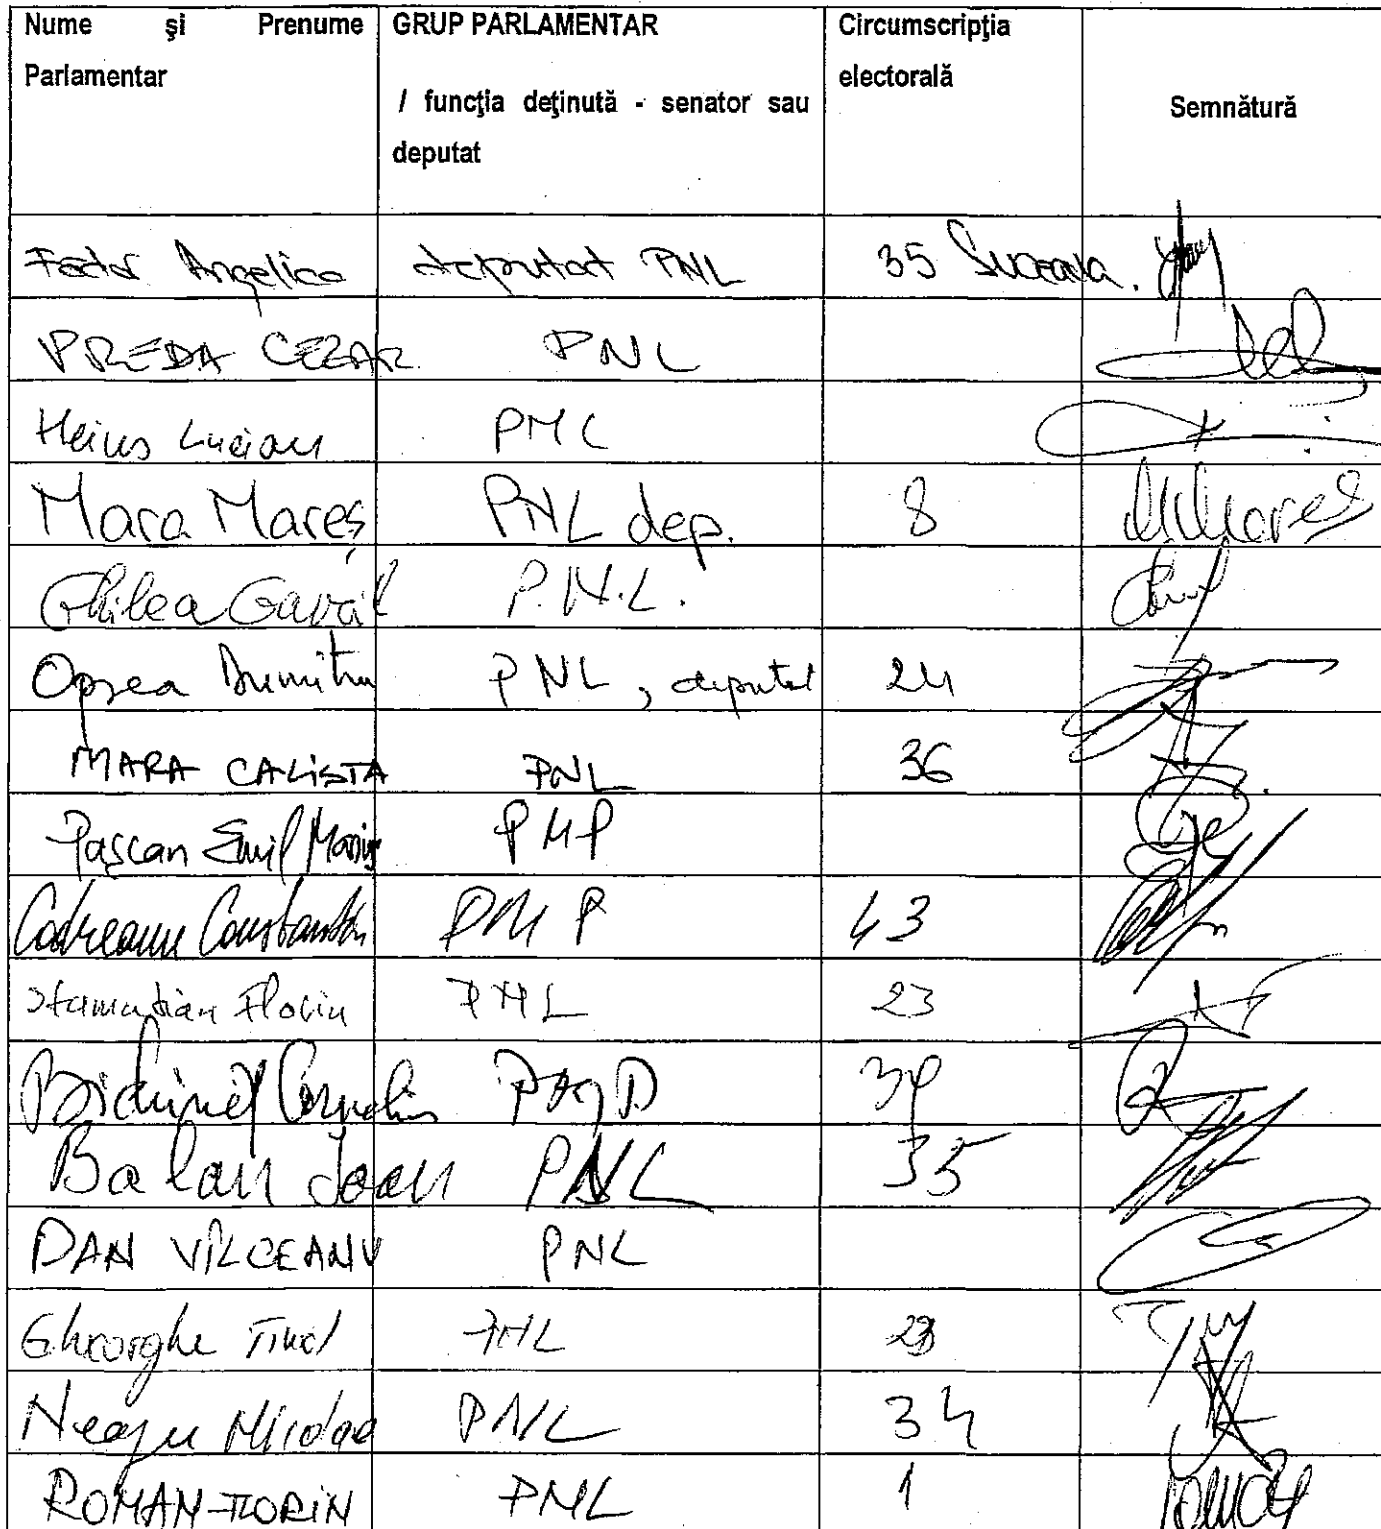 Nume și Prenume Parlamentar
GRUP PARLAMENTAR
/ funcţia deţinută - senator sau deputat
Circumscripţia electorală
Semnătură
Fador Angelica deputat PNL 35 Suceava.
PREDA CEZAR PNL
Heius Lucian PNL
Mara Mareș PNL dep. 8
Ghilea Găvrilă P.N.L.
Oprea Dumitru PNL, deputat 24
MARA CALISTA PNL 36
Pașcan Emil Marius PMP
Codreanu Constantin PMP 43
Stamatian Florin PNL 23
Bichineț Corneliu PMP
Balan Ioan PNL 35
DAN VÎLCEANU PNL
Gheorghe Tinel PNL
Neagu Nicolae PNL 34
ROMAN FLORIN PNL 1